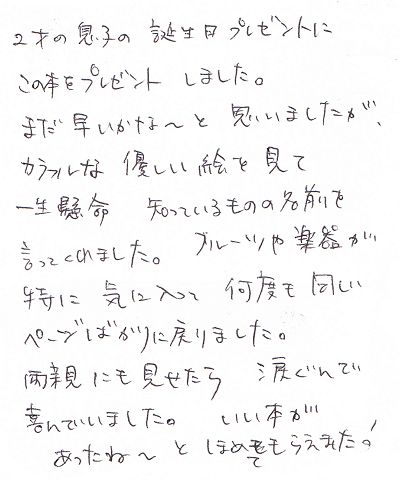 2才の息子の 誕生日プレゼントに
この本をプレゼント しました。
まだ 早いかな〜と 思いいましたが、
カラフルな 優しい 絵を 見て
一生懸命 知っているものの名前を
言ってくれました。 フルーツや楽器が
特に 気に入って 何度も 同じ
ページばかりに戻りました。
両親にも見せたら 涙ぐんで
喜んでいました。 いい本が
あったね〜 と ほめてもらえました!